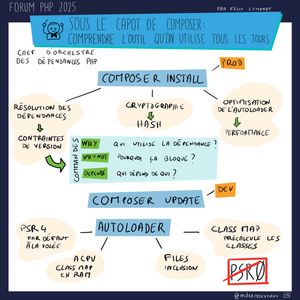 FORUM PHP 2025
SOUS LE CAPOT DE COMPOSER:
COMPRENDRE L'OUTIL QU'ON UTILISE TOUS LES JOURS
CHEF D'ORCHESTRE
DES DÉPENDANCES PHP
PROD
COMPOSER INSTALL
RÉSOLUTION DES
DÉPENDANCES
CONTRAINTES
DE VERSION
CRYPTOGRAPHIE
HASH
OPTIMISATION
DE L'AUTOLOADER
PERFORMANCE
COMMANDES
WHY QUI UTILISE LA DÉPENDANCE?
WHY NOT POURQUOI ÇA BLOQUE?
DEPENDS QUI DÉPEND DE QUI?
DEV
COMPOSER UPDATE
AUTOLOADER
PSR4
PAR DÉFAUT
À LA VOLÉE
ACPU
CLASS MAP
EN RAM
FILES
INCLUSION
CLASS MAP
PRÉCALCULE LES
CLASSES
PSR0